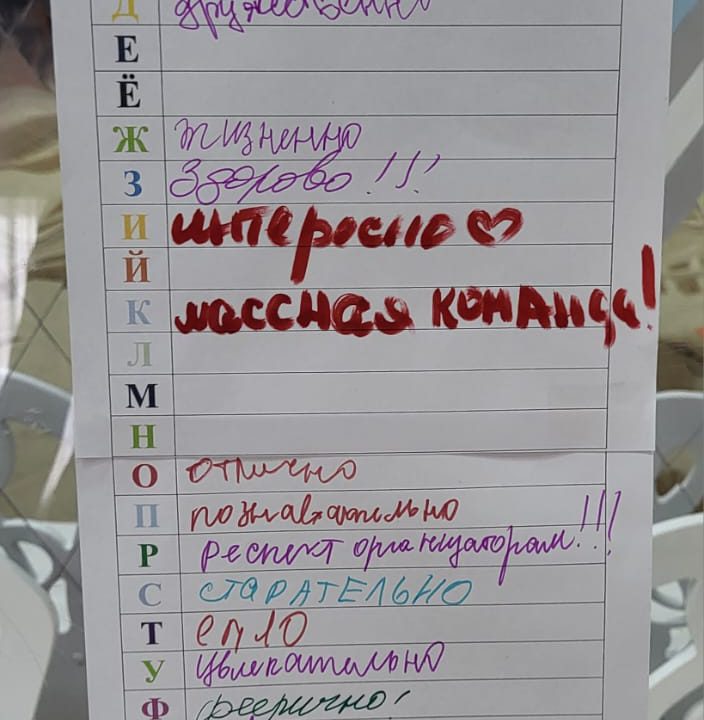 Д дружественно
Е
Ё
Ж жизненно
З Здорово!!!
И интересно ♡
Й
К лассная команда!
Л
М
Н
О отлично
П познавательно
Р Респект организаторам!!!
С СТАРАТЕЛЬНО
Т епло
У Увлекательно
Ф феерично!